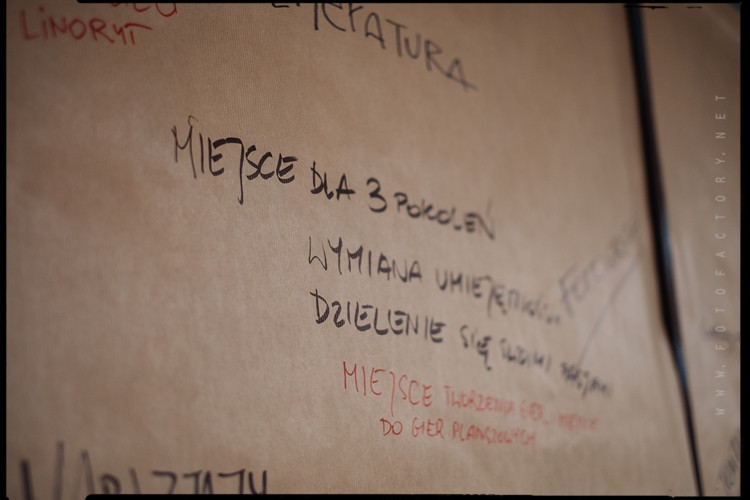 LINORYT
MIEJSCE DLA 3 POKOLEŃ
WYMIANA UMIEJĘTNOŚCI
DZIELENIE SIĘ SWOIMI PASJAMI
MIEJSCE TWORZENIA GIER
DO GIER PLANSZOWYCH
WARSZTATY
WWW.FOTOFACTORY.NET